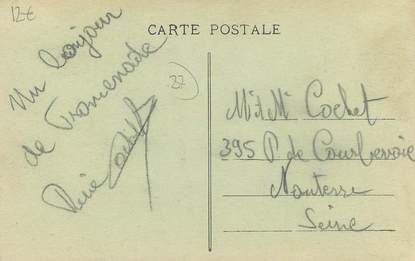 12€
CARTE POSTALE
Un bonjour
de Promenade
32
Mr & Mme Cochet
395 P. de Courbevoie
Nanterre
Seine